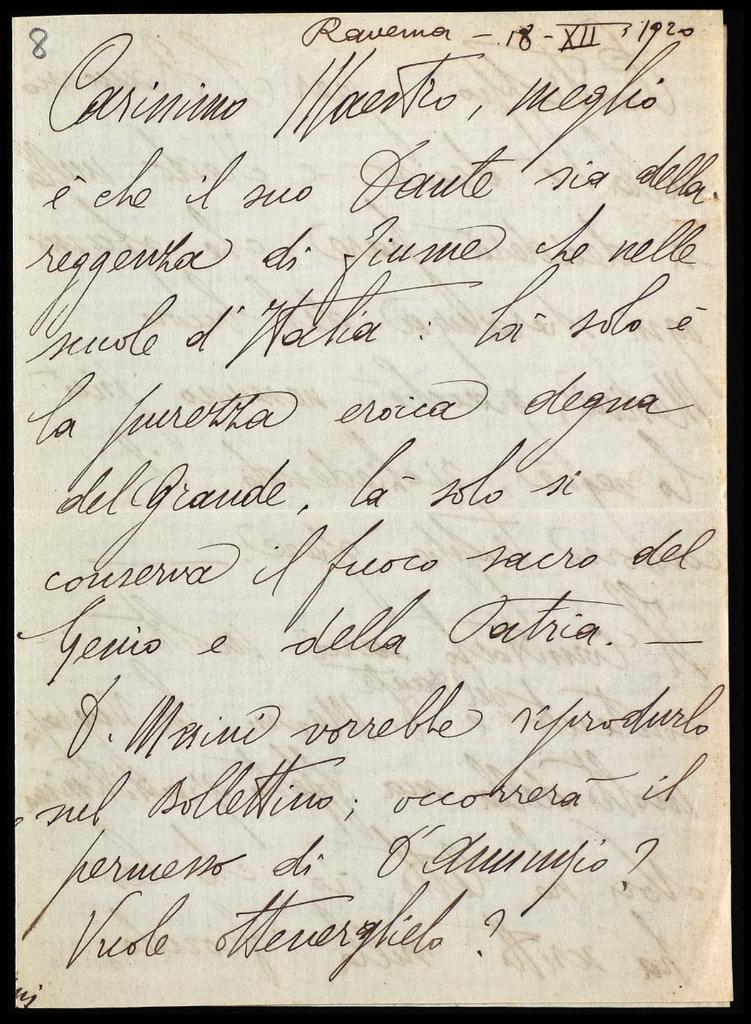 8
Ravenna - 18 - XII 1920
Carissimo Maestro, meglio
è che il suo Dante sia della
reggenza di Fiume che nelle
scuole d'Italia: là solo è
la purezza eroica degna
del Grande, là solo si
conserva il fuoco sacro del
Genio e della Patria. —
D. Mesini vorrebbe riprodurlo
nel Bollettino; occorrerà il
permesso di D'Annunzio?
Vuole ottenerglielo?